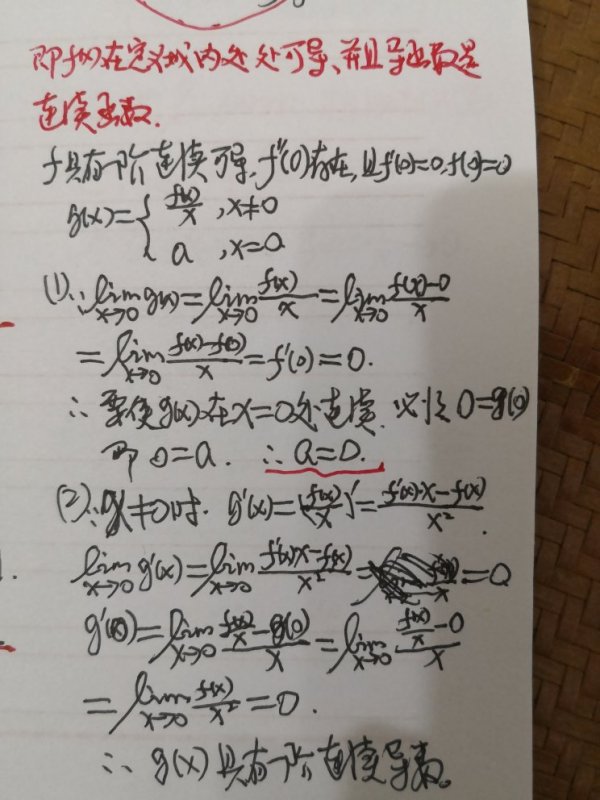 即f(x)在定义域内处处可导、并且导函数是
连续函数.
f具有一阶连续可导, f''(0)存在, 且f'(0)=0, f(0)=0
g(x)={ f(x)/x , x≠0
a , x=0
(1)∵ lim x→0 g(x) = lim x→0 f(x)/x = lim x→0 (f(x)-0)/x
= lim x→0 (f(x)-f(0))/x = f'(0) = 0.
∴ 要使g(x)在x=0处连续, 必须 0=g(0)
即 0=a. ∴ a=0.
(2)∵ x≠0时. g'(x)=(f(x)/x)'=(f'(x)·x-f(x))/x²
lim x→0 g'(x) = lim x→0 (f'(x)x-f(x))/x² = = 0
g'(0) = lim x→0 (f(x)/x - g(0))/x = lim x→0 (f(x)/x - 0)/x
= lim x→0 f(x)/x² = 0.
∴ g(x)具有一阶连续导数.